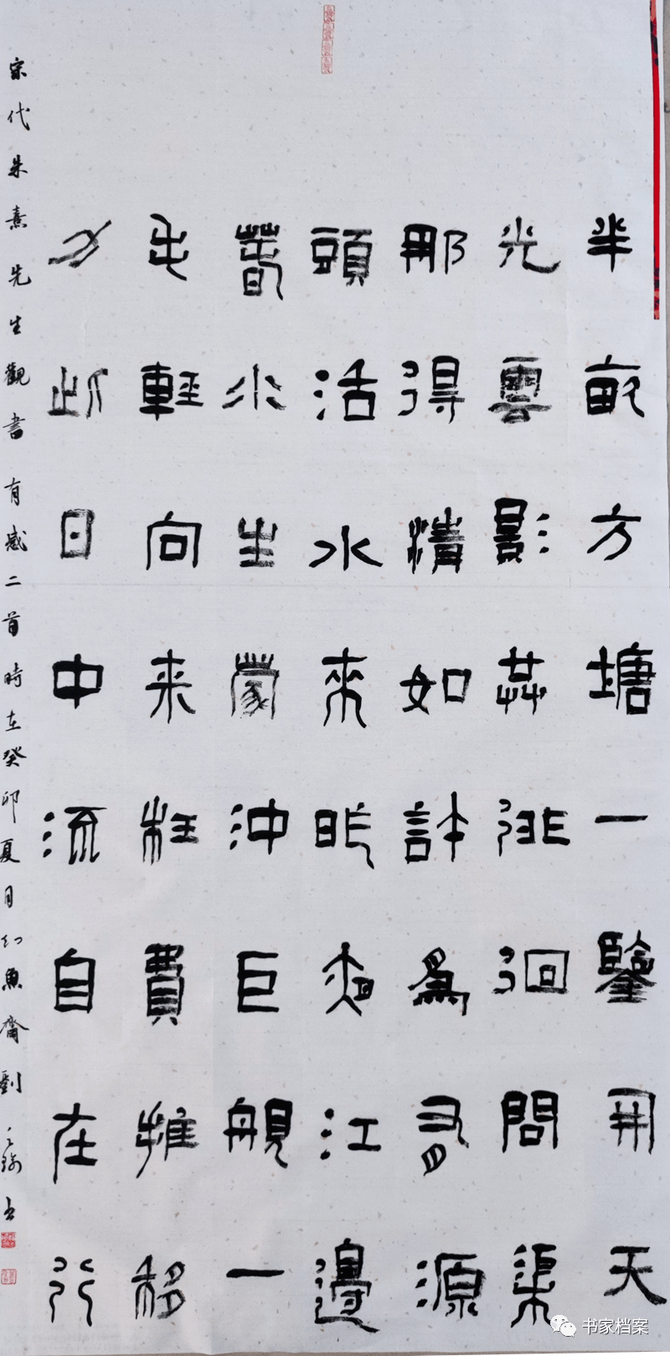 半畝方塘一鑒开天
光雲影共徘徊問渠
那得清如許為有源
頭活水來昨夜江邊
春水生蒙沖巨舰一
毛輕向来枉費推移
力此日中流自在行
宋代朱熹先生觀書有感二首時在癸卯夏月魚齋劉
书家档案